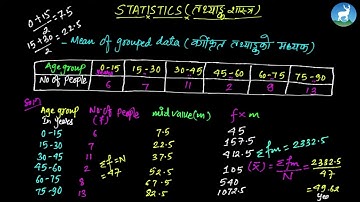 STATISTICS (तथ्याङ्क शास्त्र)
0+15/2 = 7.5
15+30/2 = 22.5
- Mean of grouped data (वर्गीकृत तथ्याङ्कको मध्यक)
Age group 0-15 15-30 30-45 45-60 60-75 75-90
No of People 6 7 11 2 8 13
Solⁿ
Age group In Years No of People (f) mid value (m) f×m
0-15 6 7.5 45
15-30 7 22.5 157.5
30-45 11 37.5 412.5
45-60 2 52.5 105
60-75 8 67.5 540
75-90 13 82.5 1072.5
Σf = N = 47
Σfm = 2332.5
(x̄) = Σfm/N = 2332.5/47
= 49.62 yrs